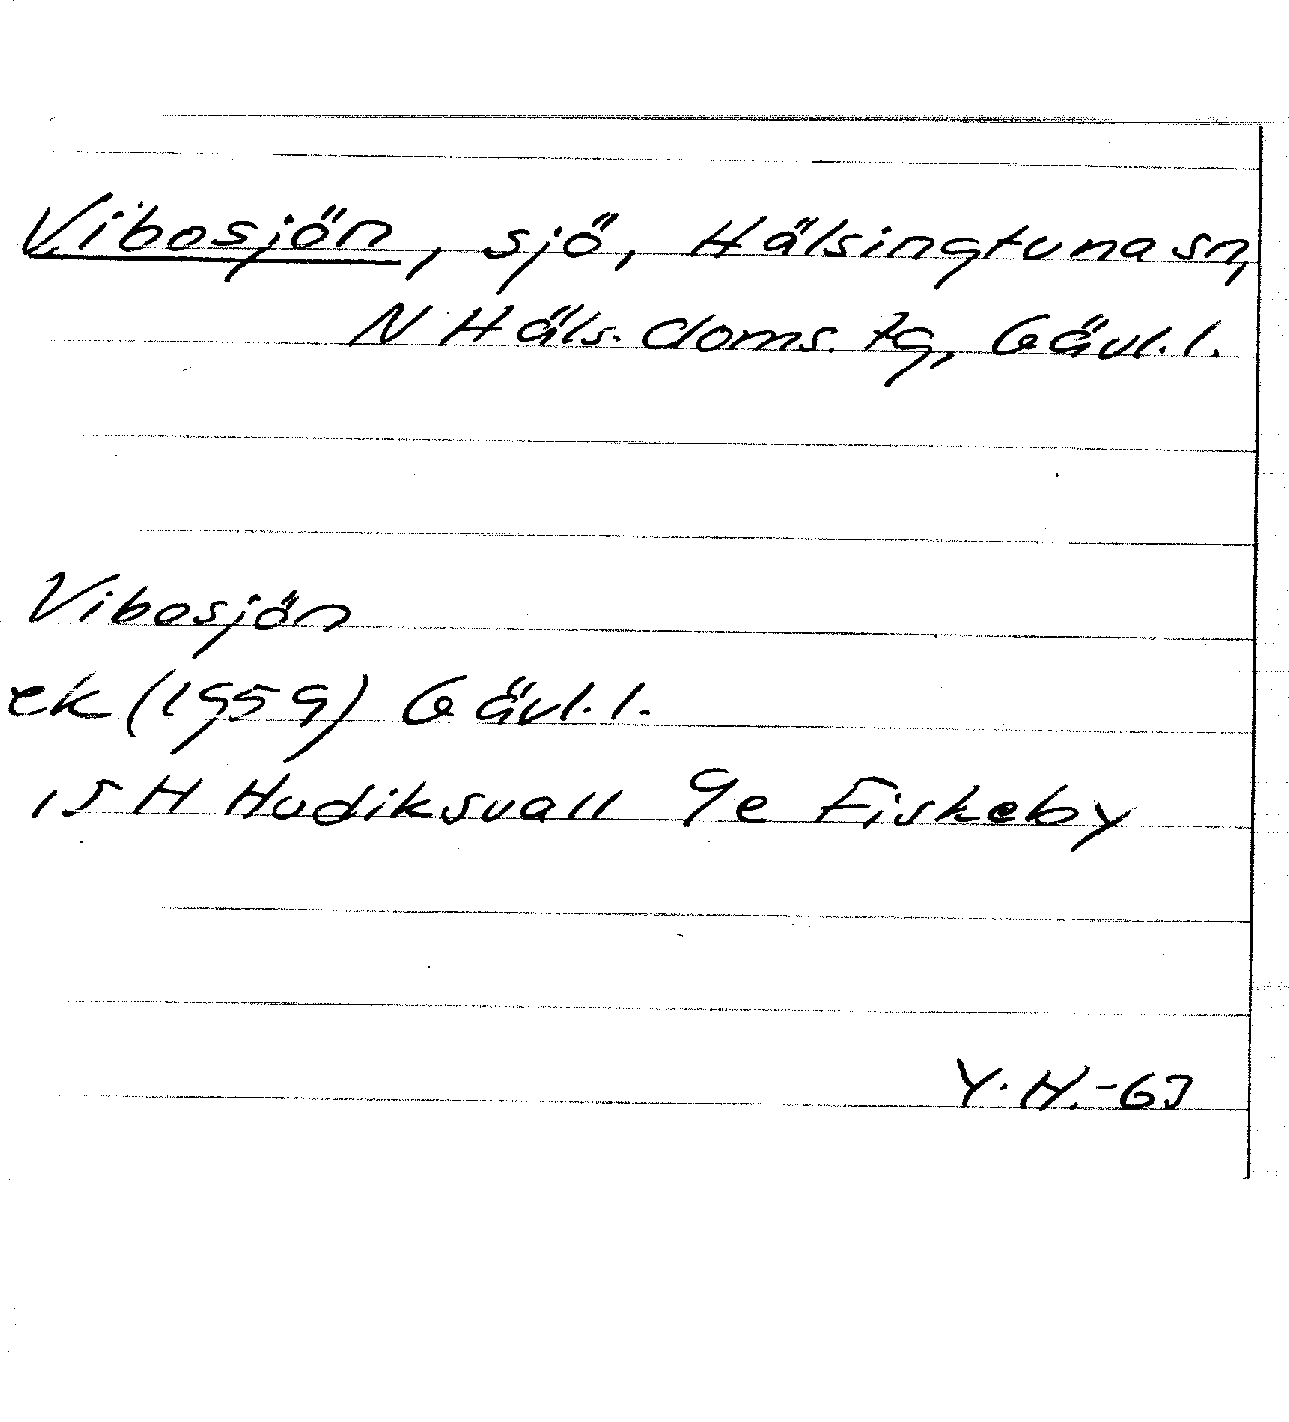 Vibosjön, sjö, Hälsingtuna sn,
N Häls. doms. tg, Gävl. l.
Vibosjön
ek (1959) Gävl. l.
15 H Hudiksvall 9e Fiskeby
Y. H. -63